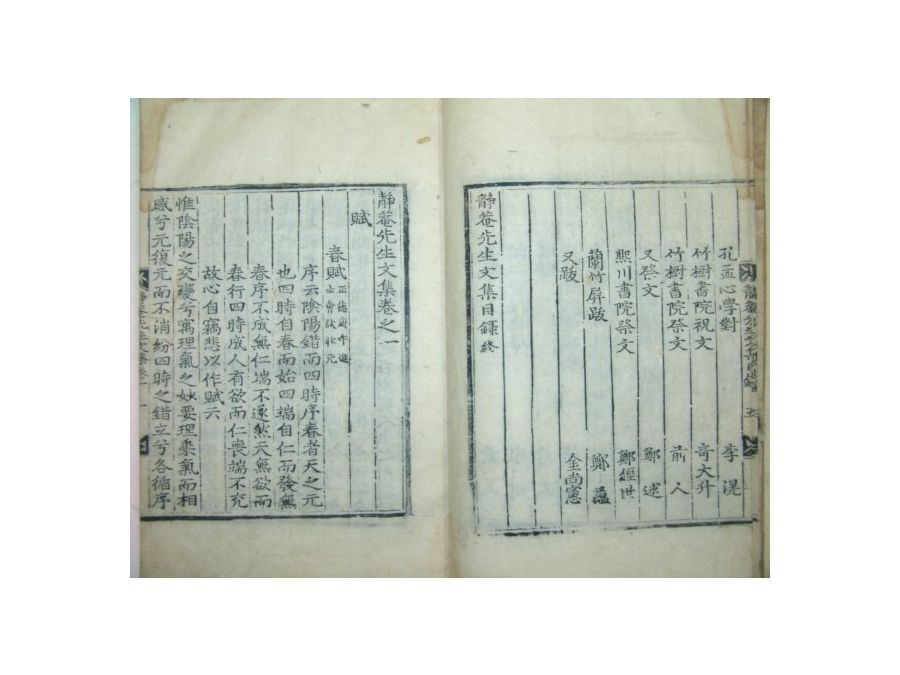 孔孟心學對 李滉
竹樹書院祝文 奇大升
竹樹書院祭文 前人
又祭文 鄭逑
熙川書院祭文 鄭經世
蘭竹屛跋 鄭蘊
又跋 金尙憲
靜菴先生文集目録終
靜菴先生文集卷之一
賦
春賦 正德庚午進士會試壯元
序云陰陽錯而四時序春者天之元
也四時自春而始四端自仁而發無
春序不成無仁端不遂然天無欲而
春行四時成人有欲而仁喪端不充
故心自竊悲以作賦云
惟陰陽之交變兮寓理氣之妙要理乘氣而相
感兮元復元而不消紛四時之錯立兮各循序